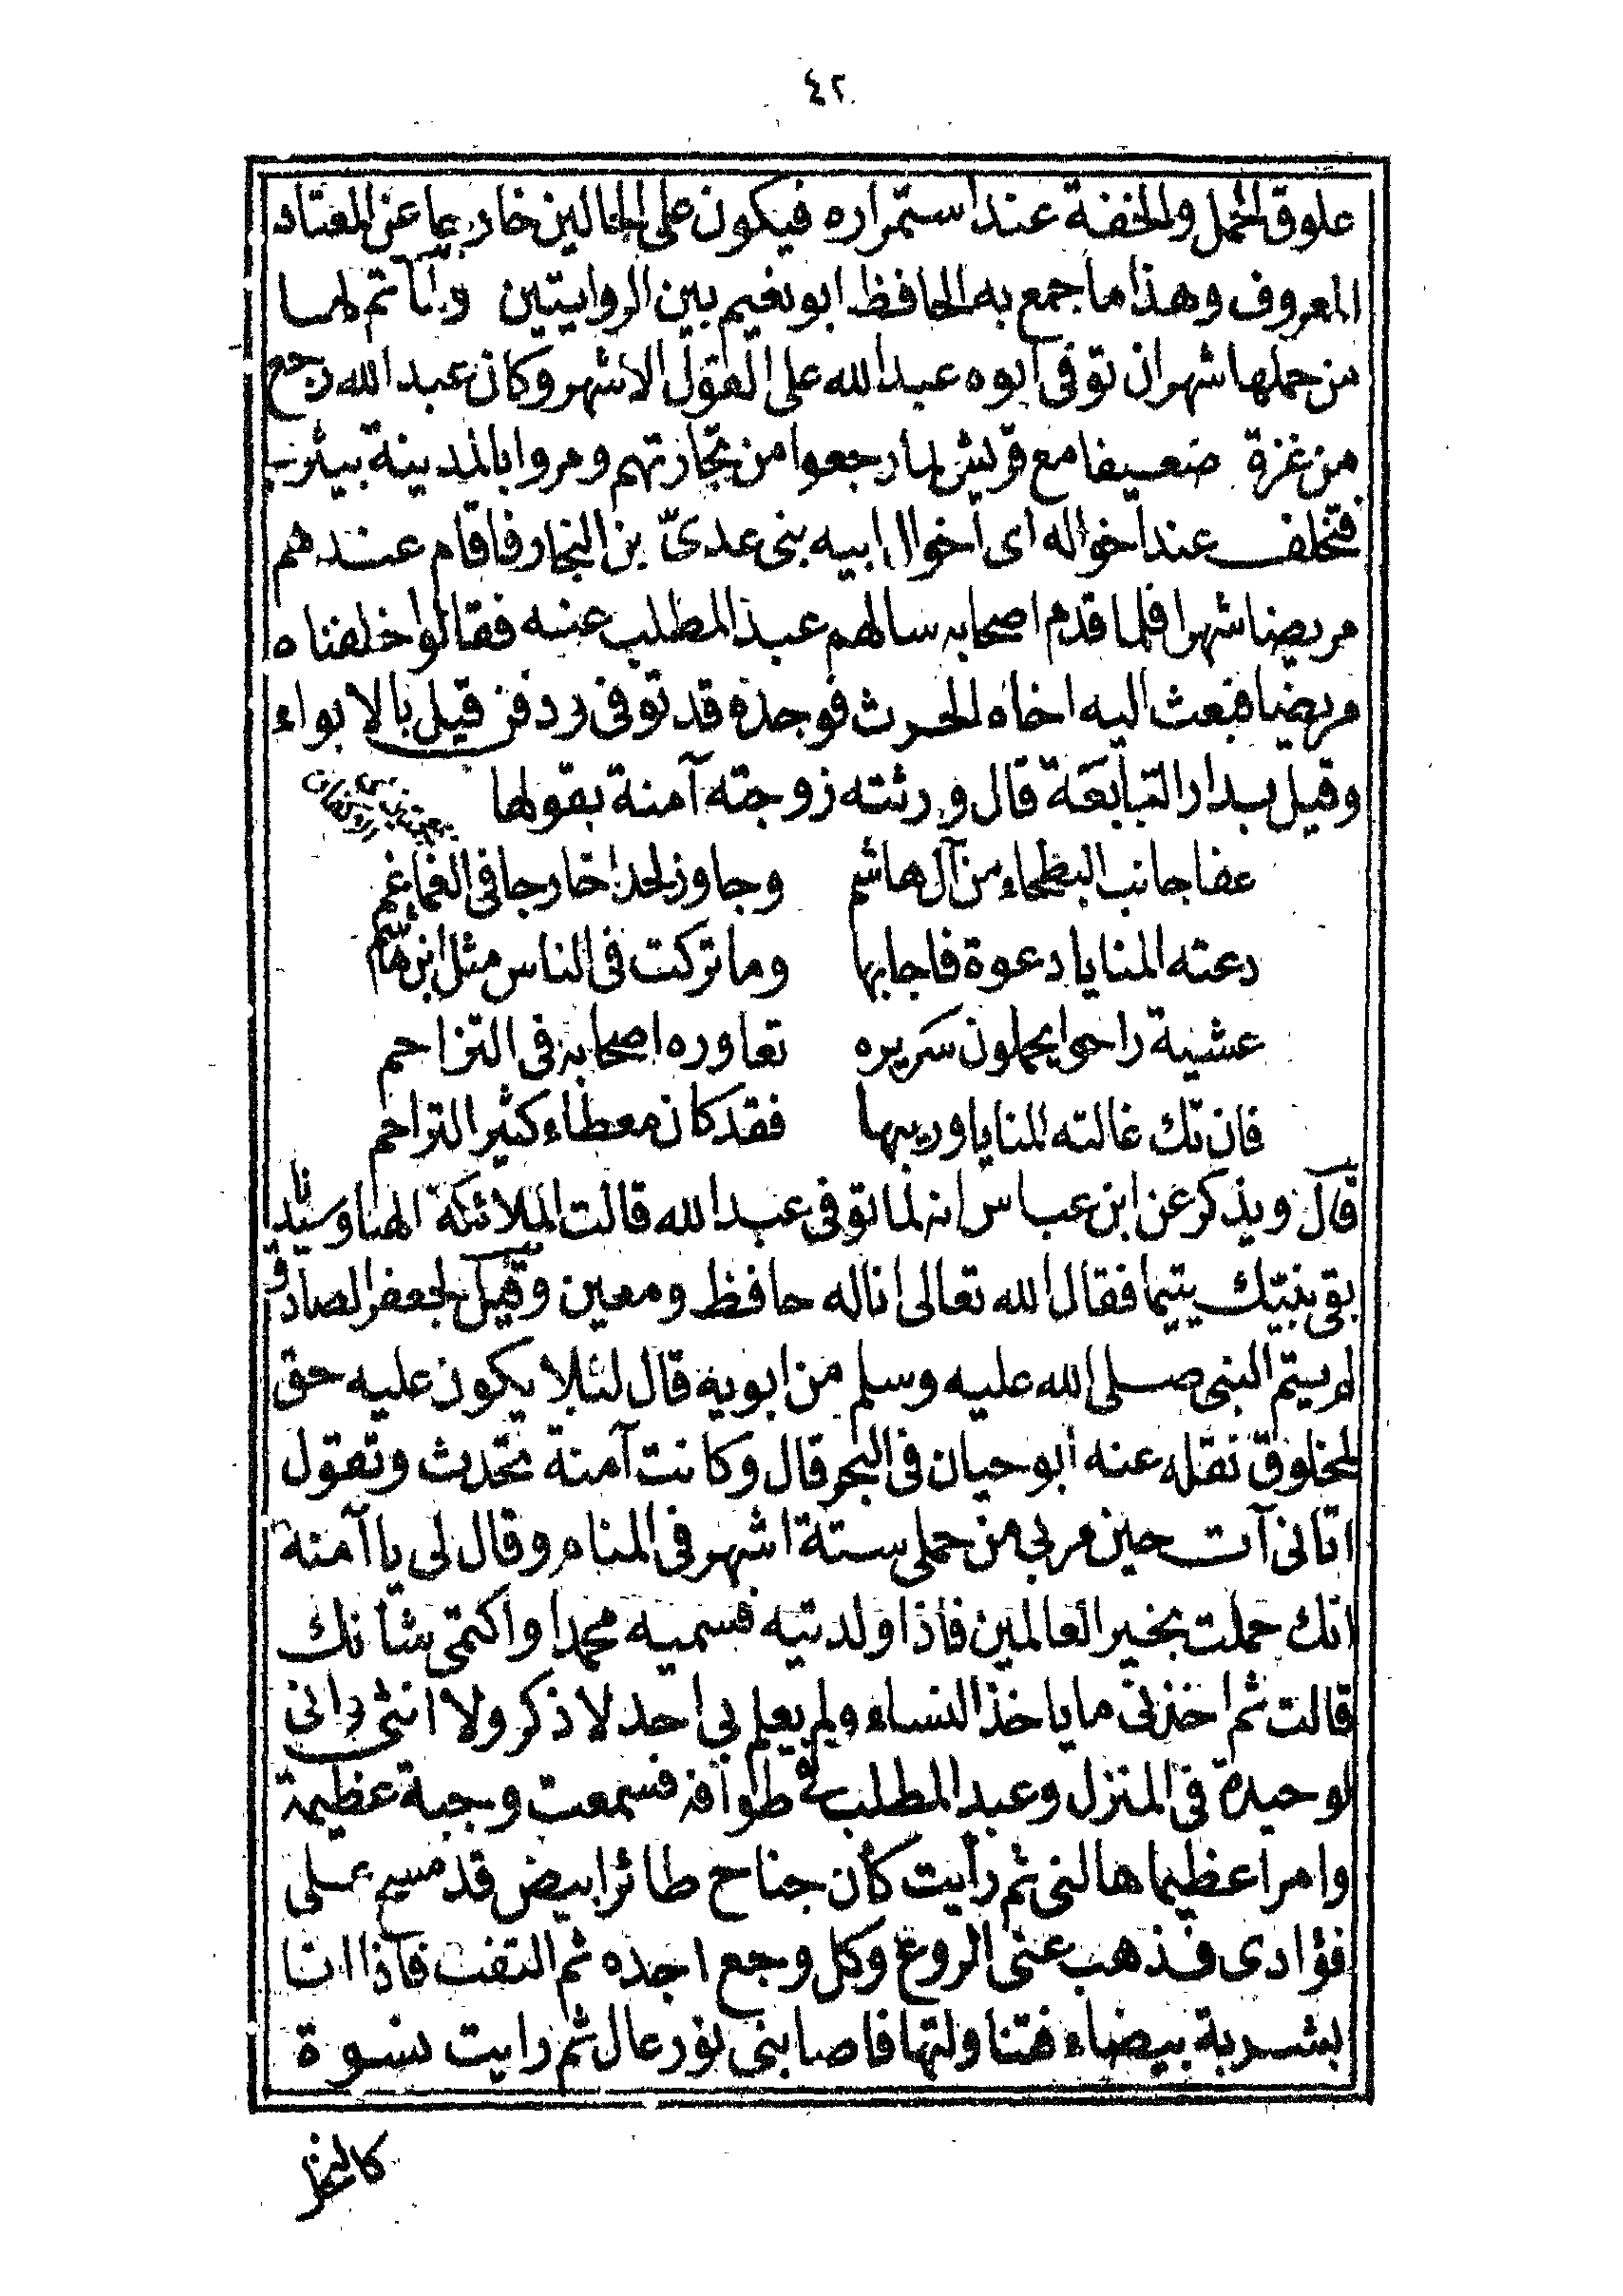 ٤٢
علوق الحمل والخفة عند استمراره فيكون على الحالين خارجا عن المعتاد
المعروف وهذا ما جمع به الحافظ ابو نعيم بين الروايتين ولما تم لها
من حملها شهران توفى ابوه عبد الله على القول الاشهر وكان عبد الله رجع
من غزة ضعيفا مع قريش لما رجعوا من تجارتهم ومروا بالمدينة بيثرب
فتخلف عند اخواله اى اخوال ابيه بنى عدىّ بن النجار فاقام عندهم
مريضا شهرا فلما قدم اصحابه سالهم عبد المطلب عنه فقالوا خلفناه
مريضا فبعث اليه اخاه الحرث فوجده قد توفى ودفن قيل بالابواء
وقيل بدار التبابعة قال ورثته زوجته آمنة بقولها
عفا جانب البطحاء من آل هاشم وجاوز لحدا خارجا فى الغماغم
دعته المنايا دعوة فاجابها وما تركت فى الناس مثل ابن هاشم
عشية راحوا يحملون سريره تعاوره اصحابه فى التزاحم
فان تك غالته المنايا وريبها فقد كان معطاء كثير التراحم
قال ويذكر عن ابن عباس انه لما توفى عبد الله قالت الملائكة الهنا وسيدنا
بقى نبيّك يتيما فقال الله تعالى انا له حافظ ومعين وقيل لجعفر الصادق
لم يتم النبى صلى الله عليه وسلم من ابويه قال لئلا يكون عليه حق
لمخلوق نقله عنه ابو حيان فى البحر قال وكانت آمنة تحدث وتقول
اتانى آت حين مر بى من حملى ستة اشهر فى المنام وقال لى يا آمنة
انك حملت بخير العالمين فاذا ولدتيه فسميه محمدا واكتمى شانك
قالت ثم اخذنى ما ياخذ النساء ولم يعلم بى احد لا ذكر ولا انثى وانى
لوحيدة فى المنزل وعبد المطلب فى طوافه فسمعت وجبة عظيمة
وامرا عظيما هالنى ثم رأيت كأن جناح طائر ابيض قد مسح على
فؤادى فذهب عنى الروع وكل وجع اجده ثم التفت فاذا انا
بشربة بيضاء فتناولتها فاصابنى نور عال ثم رايت نسوة
كالنخل